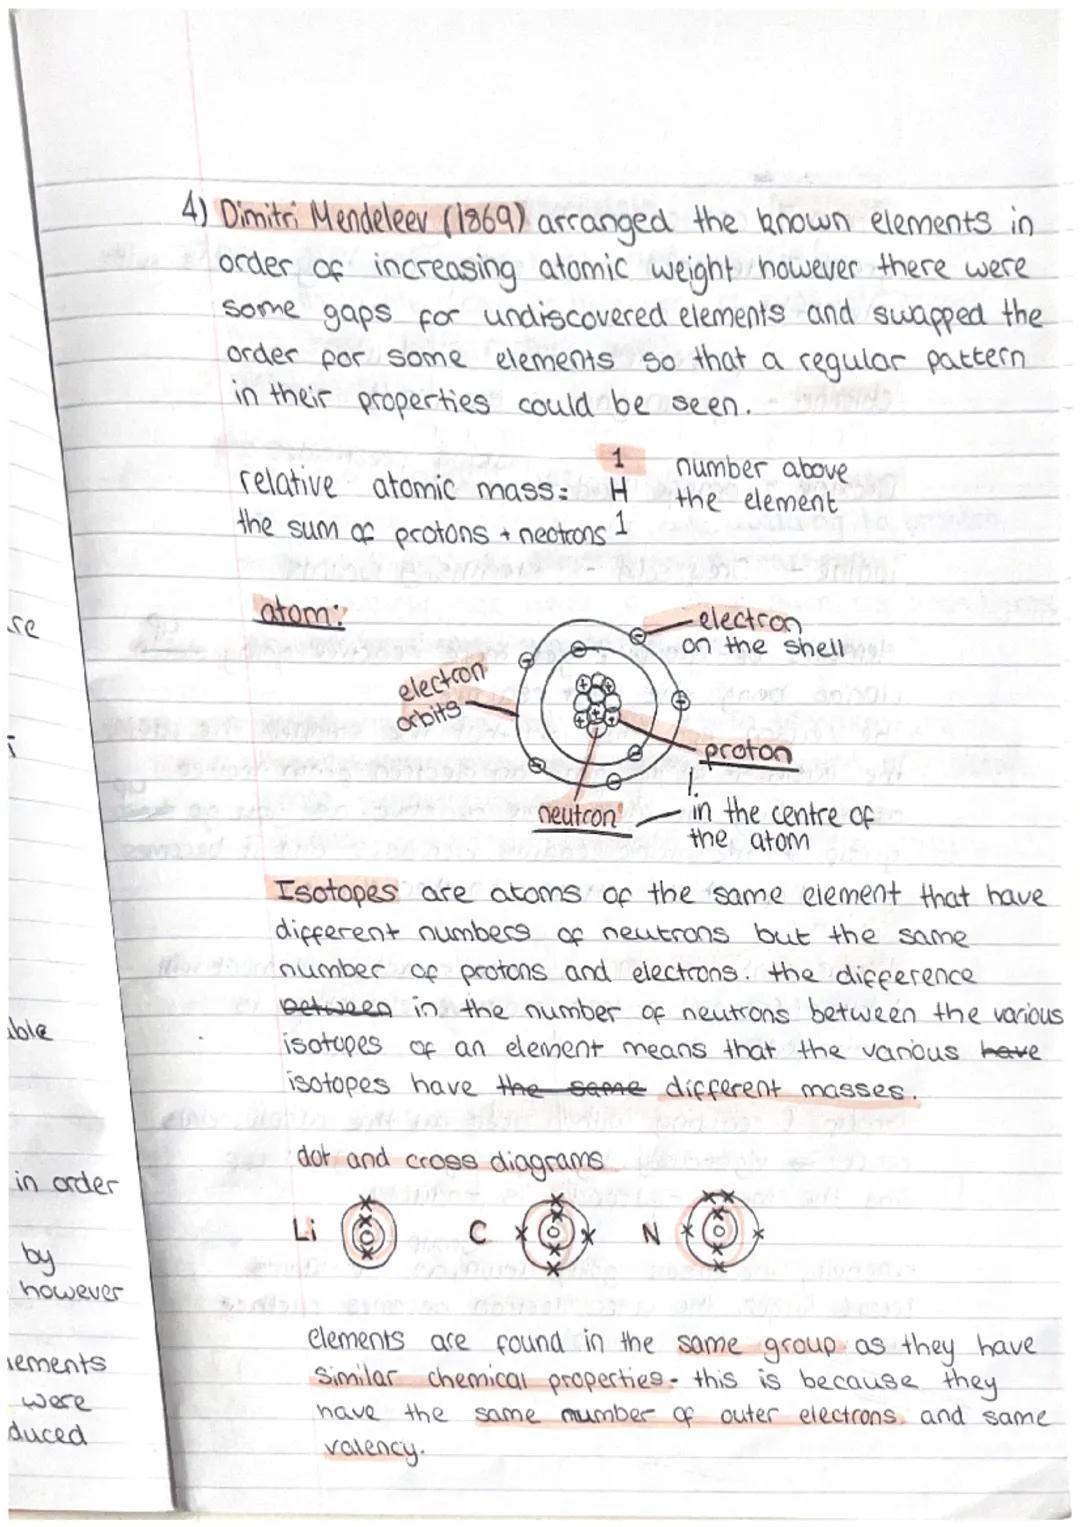 4) Dimitri Mendeleev (1869) arranged the known elements in
order of increasing atomic weight however there were
some gaps for undiscovered elements and swapped the
order for some elements so that a regular pattern
in their properties could be seen.
relative atomic mass:
the sum of protons + neotrons
1
H
1
number above
the element
atom:
electron
on the shell
electron
orbits
proton
neutron
in the centre of
the atom
Isotopes are atoms of the same element that have
different numbers of neutrons but the same
number of protons and electrons. the difference
between in the number of neutrons between the various
isotopes of an element means that the various have
isotopes have the same different masses.
dot and cross diagrams
Li C N
elements are found in the same group as they have
similar chemical properties - this is because they
have the same number of outer electrons and same
valency.
re
ble
in order
by
however
ements
were
duced